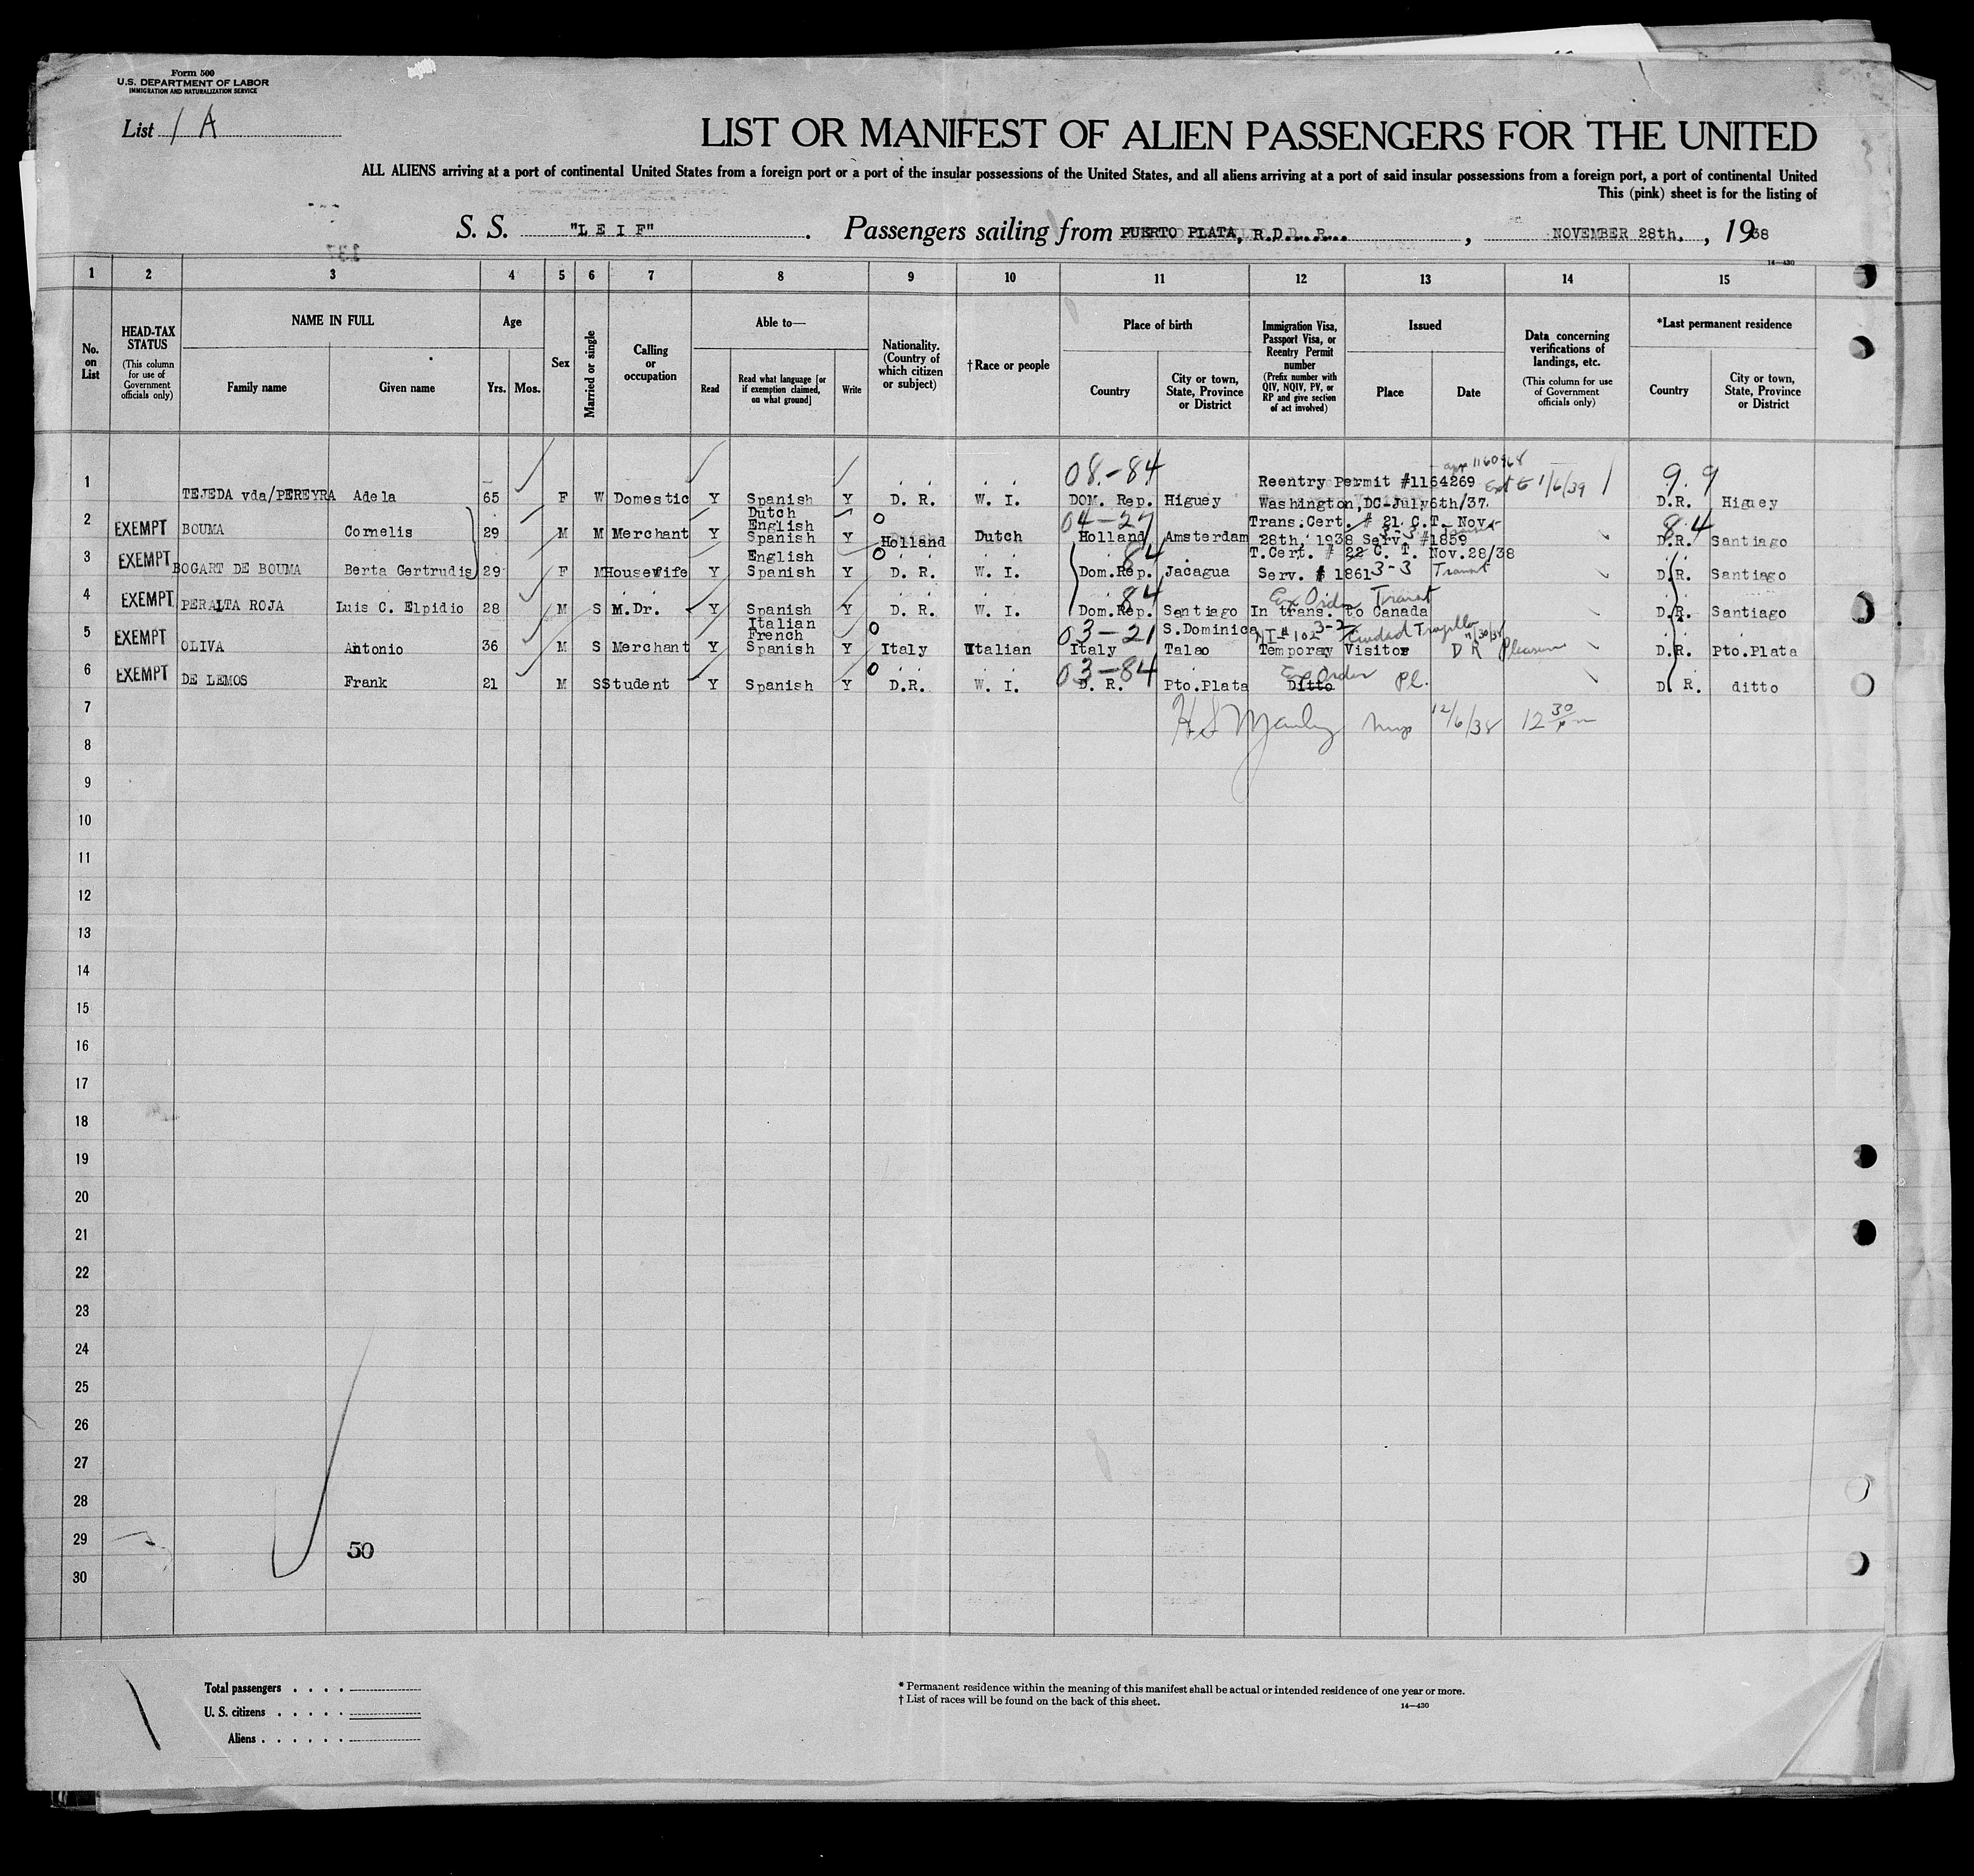 Form 500
U.S. DEPARTMENT OF LABOR
IMMIGRATION AND NATURALIZATION SERVICE
List 1 A
LIST OR MANIFEST OF ALIEN PASSENGERS FOR THE UNITED
ALL ALIENS arriving at a port of continental United States from a foreign port or a port of the insular possessions of the United States, and all aliens arriving at a port of said insular possessions from a foreign port, a port of continental United
This (pink) sheet is for the listing of
S. S. "L E I F" . Passengers sailing from PUERTO PLATA, R.D. , NOVEMBER 28th. , 1938
14—430
1 2 3 4 5 6 7 8 9 10 11 12 13 14 15
No. on List
HEAD-TAX STATUS
(This column for use of Government officials only)
NAME IN FULL
Family name
Given name
Age
Yrs. Mos.
Sex
Married or single
Calling or occupation
Able to—
Read
Read what language [or if exemption claimed, on what ground]
Write
Nationality. (Country of which citizen or subject)
†Race or people
Place of birth
Country
City or town, State, Province or District
Immigration Visa, Passport Visa, or Reentry Permit number
(Prefix number with QIV, NQIV, PV, or RP and give section of act involved)
Issued
Place
Date
Data concerning verifications of landings, etc.
(This column for use of Government officials only)
*Last permanent residence
Country
City or town, State, Province or District
08.-84 1160968 9.9
Reentry Permit #1164269 Ext to 1/6/39
1 TEJEDA vda/PEREYRA Adela 65 F W Domestic Y Spanish Y D. R. W. I. DOM. Rep. Higuey Washington,DC-July6th/37. D.R. Higuey
Dutch
English 04-27 Trans.Cert. # 21 C.T. Nov. 8.4
2 EXEMPT BOUMA Cornelis 29 M M Merchant Y Spanish Y Holland Dutch Holland Amsterdam 28th, 1938 Serv. #1859 D.R. Santiago
English 84 T.Cert. # 22 C. T. Nov.28/38
3 EXEMPT BOGART DE BOUMA Berta Gertrudis 29 F M Housewife Y Spanish Y D. R. W. I. Dom.Rep. Jacagua Serv. # 1861 3-3 Transit D.R. Santiago
84 Ex Order Transit
4 EXEMPT PERALTA ROJA Luis C. Elpidio 28 M S M.Dr. Y Spanish Y D. R. W. I. Dom.Rep. Santiago In trans. to Canada D.R. Santiago
Italian
French 03-21 S.Dominica 3-2 Ciudad Trujillo 11/30/38
5 EXEMPT OLIVA Antonio 36 M S Merchant Y Spanish Y Italy Italian Italy Talao Temporay Visitor D R Pleasure D.R. Pto.Plata
03-84 Ex Order Pl.
6 EXEMPT DE LEMOS Frank 21 M S Student Y Spanish Y D.R. W. I. D. R. Pto.Plata Ditto D. R. ditto
7 12/6/38 12 30
8
9
10
11
12
13
14
15
16
17
18
19
20
21
22
23
24
25
26
27
28
29
50
30
Total passengers . . . .
U. S. citizens . . . . .
Aliens . . . . . .
* Permanent residence within the meaning of this manifest shall be actual or intended residence of one year or more.
† List of races will be found on the back of this sheet.
14—430